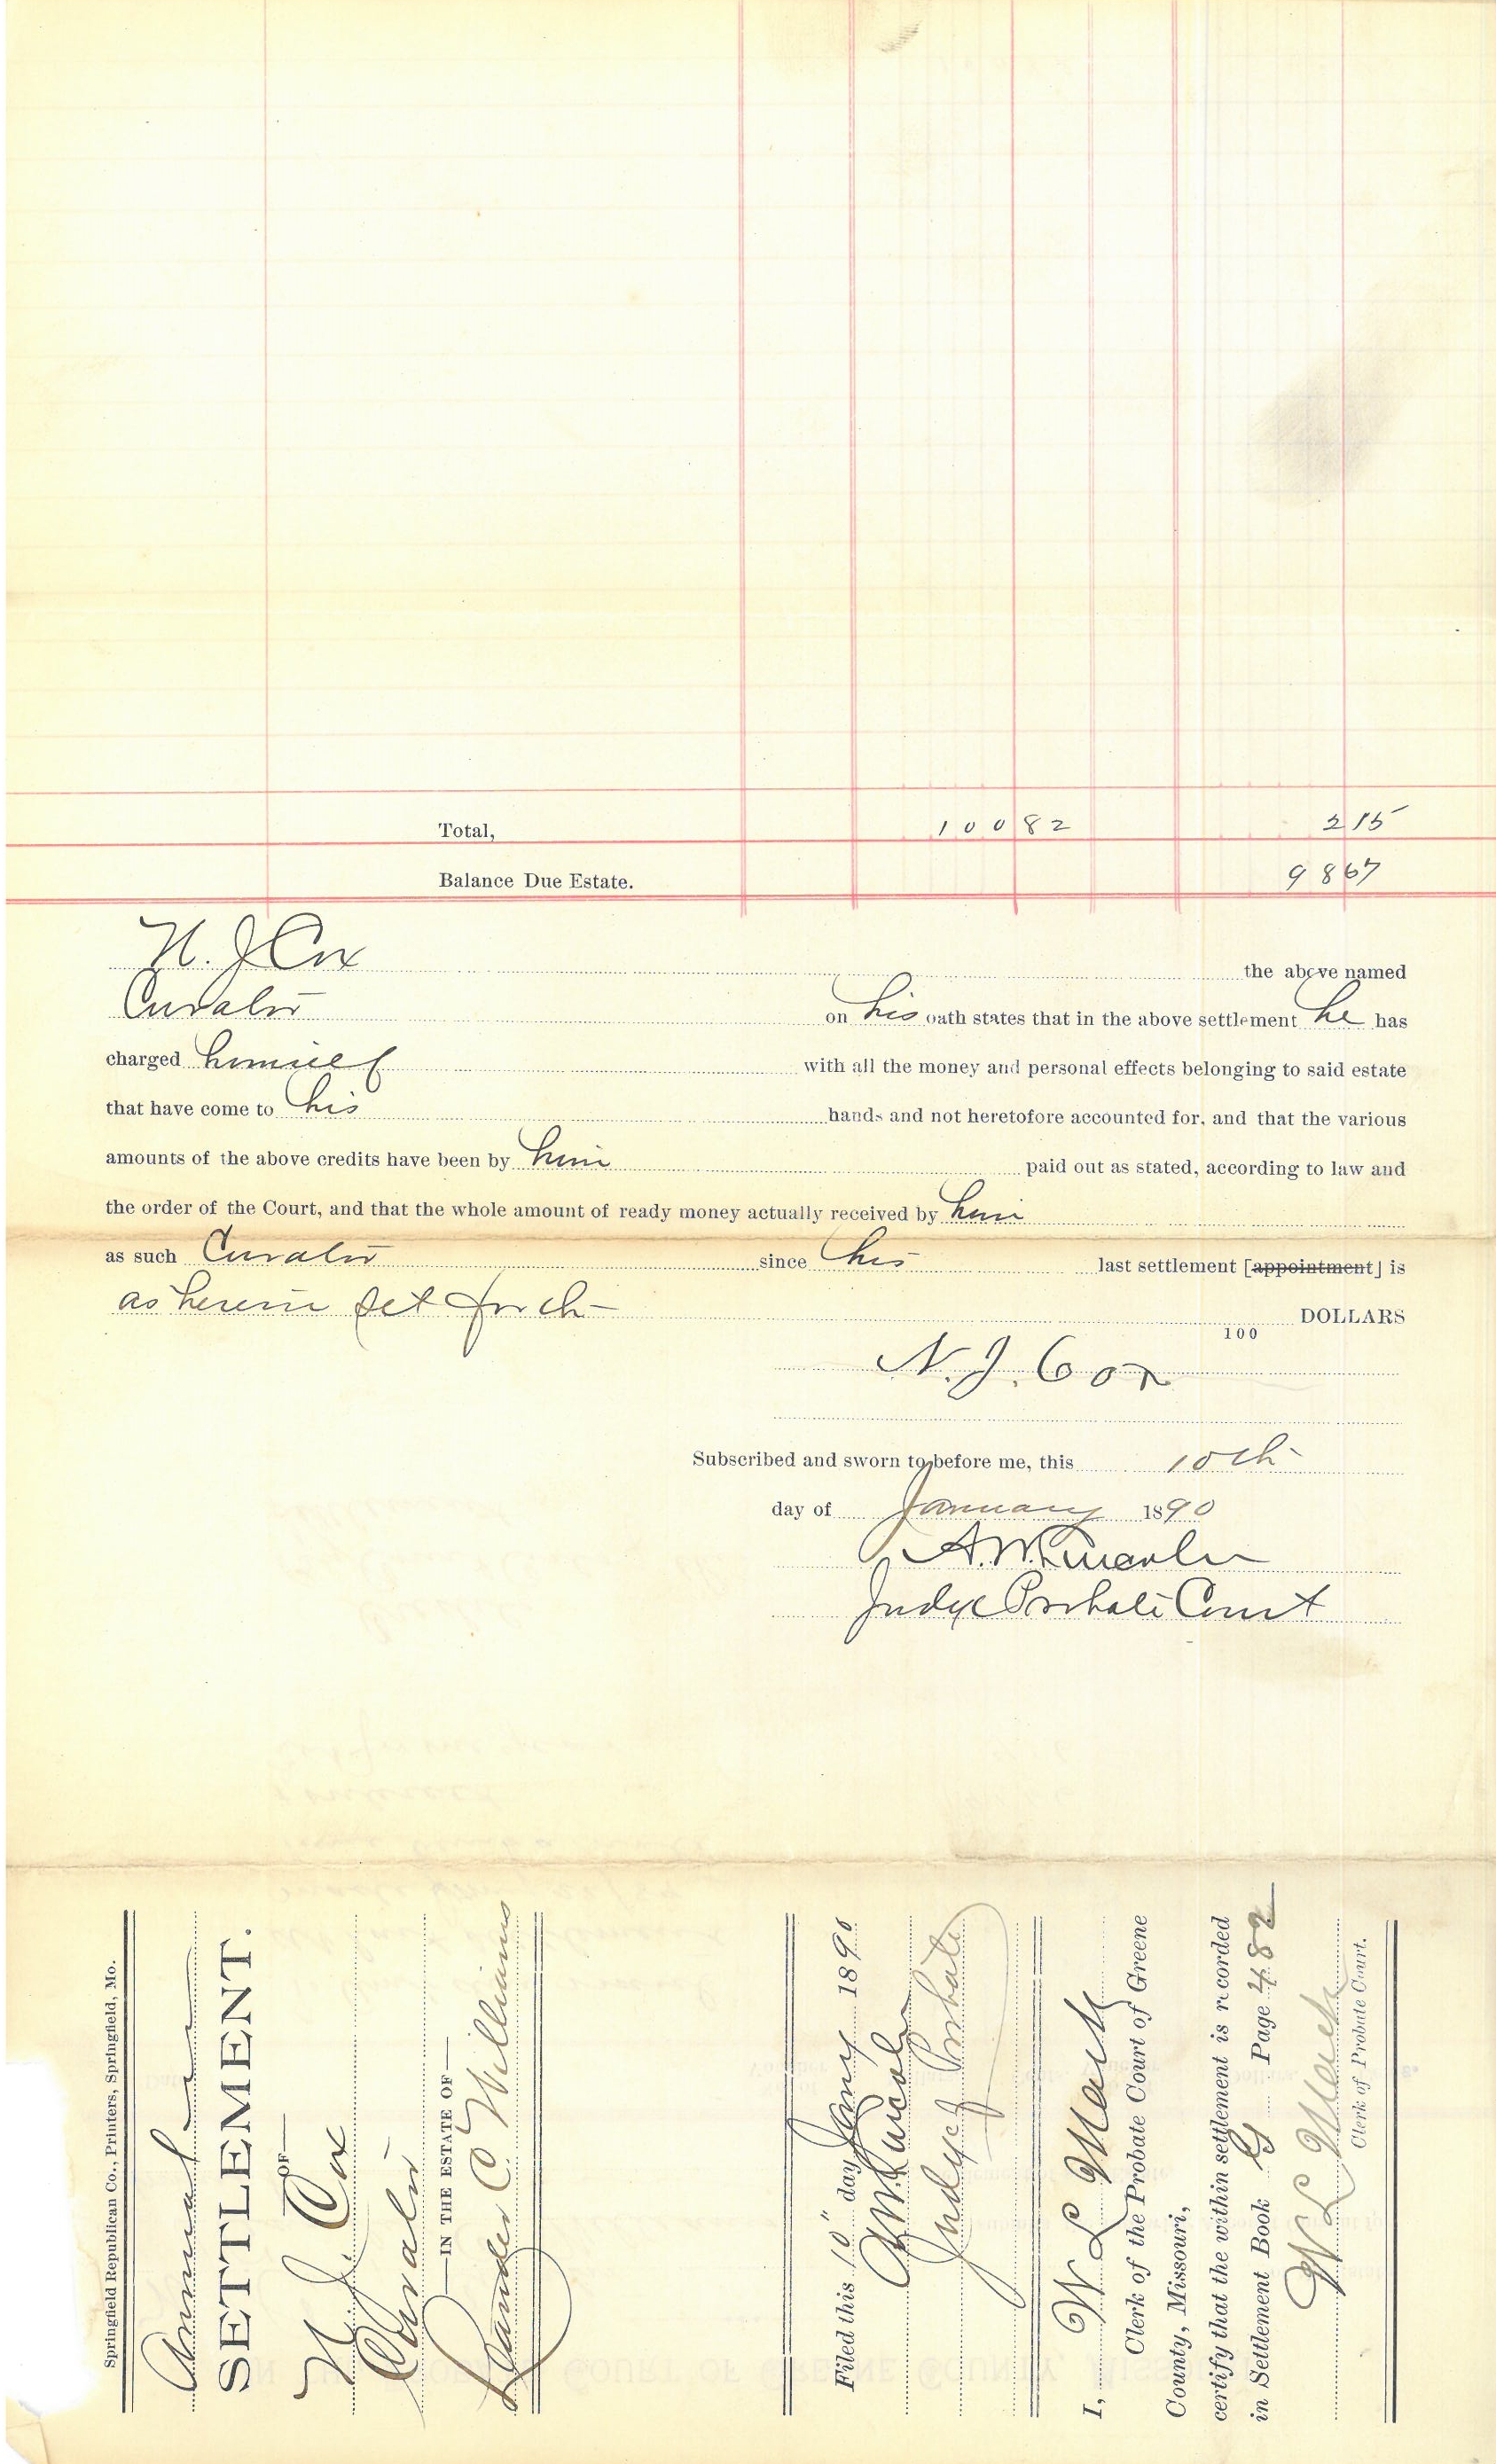 Total, 100 82 2 15
Balance Due Estate. 98 67
N. J. Cox the above named
Curator on his oath states that in the above settlement he has
charged himself with all the money and personal effects belonging to said estate
that have come to his hands and not heretofore accounted for, and that the various
amounts of the above credits have been by him paid out as stated, according to law and
the order of the Court, and that the whole amount of ready money actually received by him
as such Curator since his last settlement [appointment] is
as herein set forth
100 DOLLARS
N. J. Cox
Subscribed and sworn to before me, this 10th
day of January 1890
A. W. Lincoln
Judge Probate Court
Springfield Republican Co., Printers, Springfield, Mo.
Annual
SETTLEMENT.
—OF—
N. J. Cox
Curator
—IN THE ESTATE OF—
C. Williams
Filed this 10" day Jany 1890
A. W. Lincoln
Judge of Probate
I, W L Mack
Clerk of the Probate Court of Greene
County, Missouri,
certify that the within settlement is recorded
in Settlement Book G Page 482
W L Mack
Clerk of Probate Court.